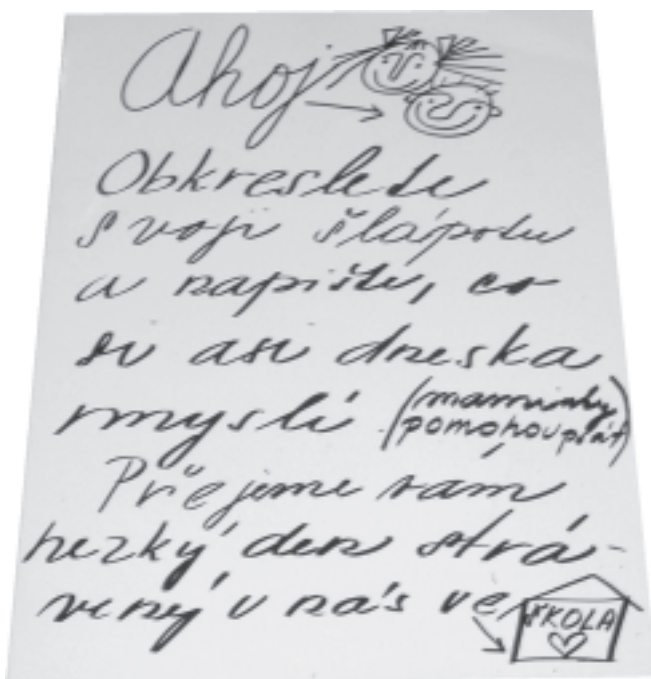 Ahoj
Obkreslete
svoji šlápotu
a napište, co
si asi dneska
myslí (maminky
pomohou psát)
Přejeme vám
hezký den strá-
vený u nás ve
ŠKOLA